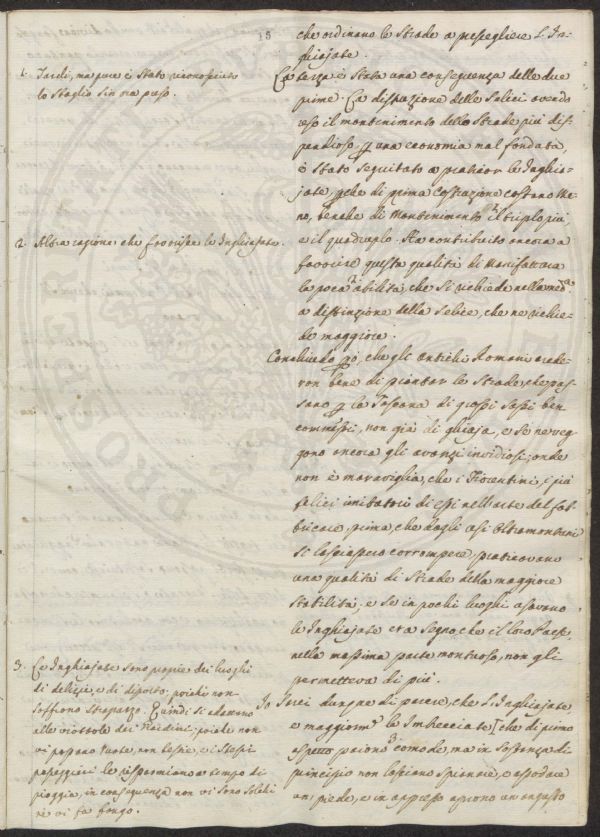 15
che ordinano le Strade a preseggliere l'In-
ghiajate.
La terza è Stata una conseguenza delle due
prime. La distruzione delle Selici avendo
reso il mantenimento delle Strade più dis-
pendioso, p una economia mal fondata,
è Stato seguitato a praticar le Inghia-
jate, pche di prima Costruzione costano Me-
no, benche di Mantenimento il triplo più
e il quadruplo. Ha contribuito ancora a
favorire questa qualità di Manifattura
la poca abilità, che si richiede nella med.a
a distinzione della Selice, che ne richie-
de maggiore.
Concludendo pò, che gli antichi Romani crede-
ron bene di piantar le Strade, che pas-
sano p la Toscana di grossi Sassi ben
commessi, non già di ghiaja, e se ne veg-
gono ancora gli avanzi invidiosi; onde
non è maraviglia, che i Fiorentini i più
felici imitatori di essi nell'arte del fab-
bricare prima, che dagli usi Oltramontani
si lasciassero corrompere, praticavano
una qualità di Strade della maggiore
Stabilità; e se in pochi luoghi usavano
le Inghiajate era Segno, che il loro Paese
nella massima parte montuoso, non gli
permetteva di più.
Io Sarei dunque di parere, che l'Inghiajate,
e maggiorm.te le Imbrecciate, che di primo
aspetto pajono comode, ma in Sostanza di
principio non lasciano spianare, e assodare
un piede, e in appresso aprono un angusto
1. Tardi, ma pure è Stato riconosciuto
lo Sbaglio Sin ora preso.
2. Altra ragione che favorisce le Inghiajate.
3. Le Inghiajate sono proprie dei luoghi
di delizie, e di diporto; poiché non
Soffrono Strapazzo. Quindi si adattano
alle viottole dei Giardini; poiché non
vi passano ruote, non bestie, e i Stessi
passeggieri le risparmiano a tempo di
pioggia, in conseguenza non vi sono Solchi
né vi fa fango.